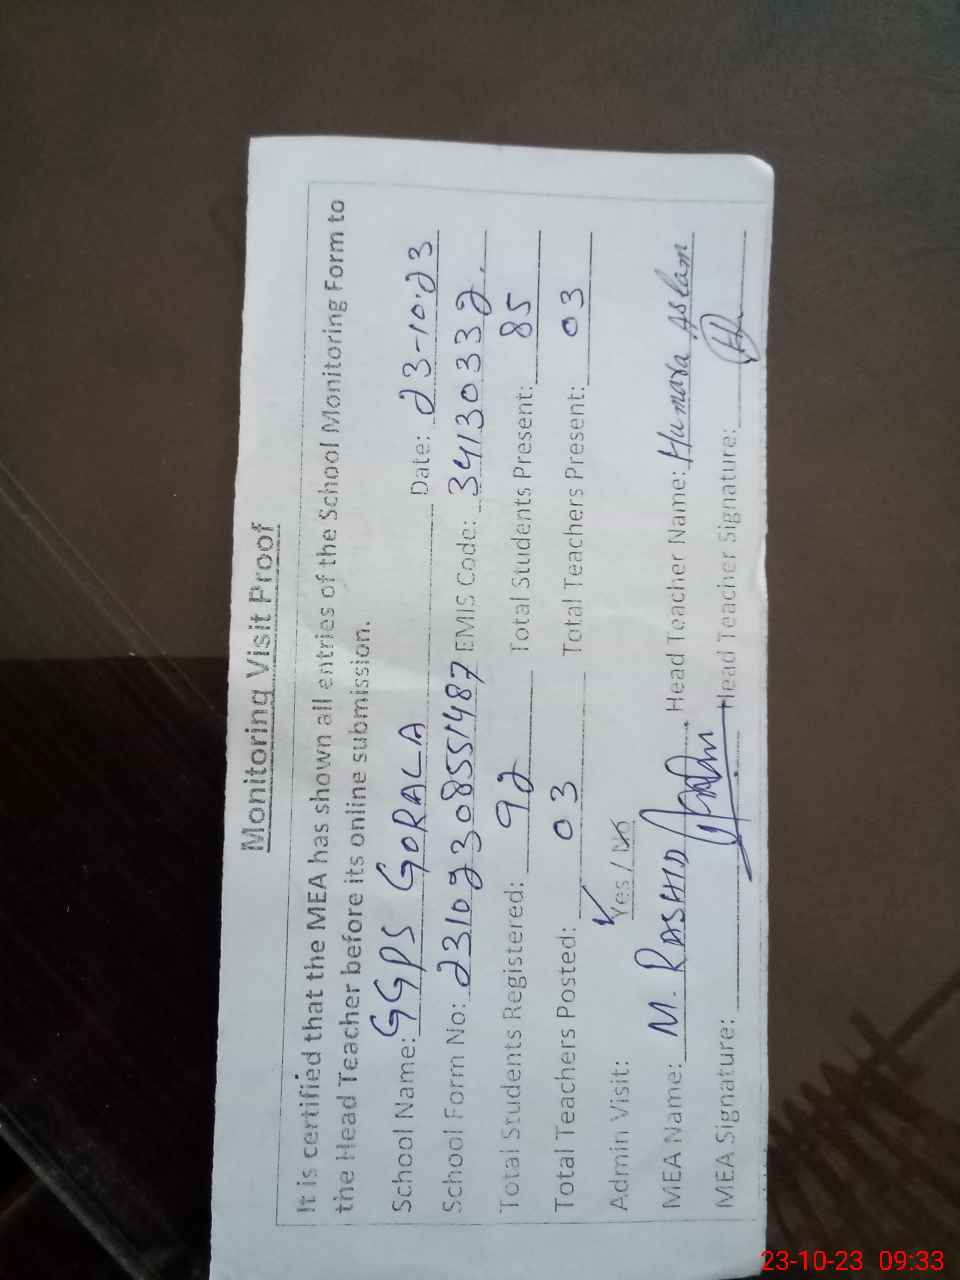 Monitoring Visit Proof
It is certified that the MEA has shown all entries of the School Monitoring Form to
the Head Teacher before its online submission.
School Name: GGPS GORALA Date: 23-10-23
School Form No: 23102308551487 EMIS Code: 34130332.
Total Students Registered: 92 Total Students Present: 85
Total Teachers Posted: 03 Total Teachers Present: 03
Admin Visit: Yes / No
MEA Name: M. RASHID Head Teacher Name: Humara Aslam
MEA Signature: Head Teacher Signature:
23-10-23 09:33